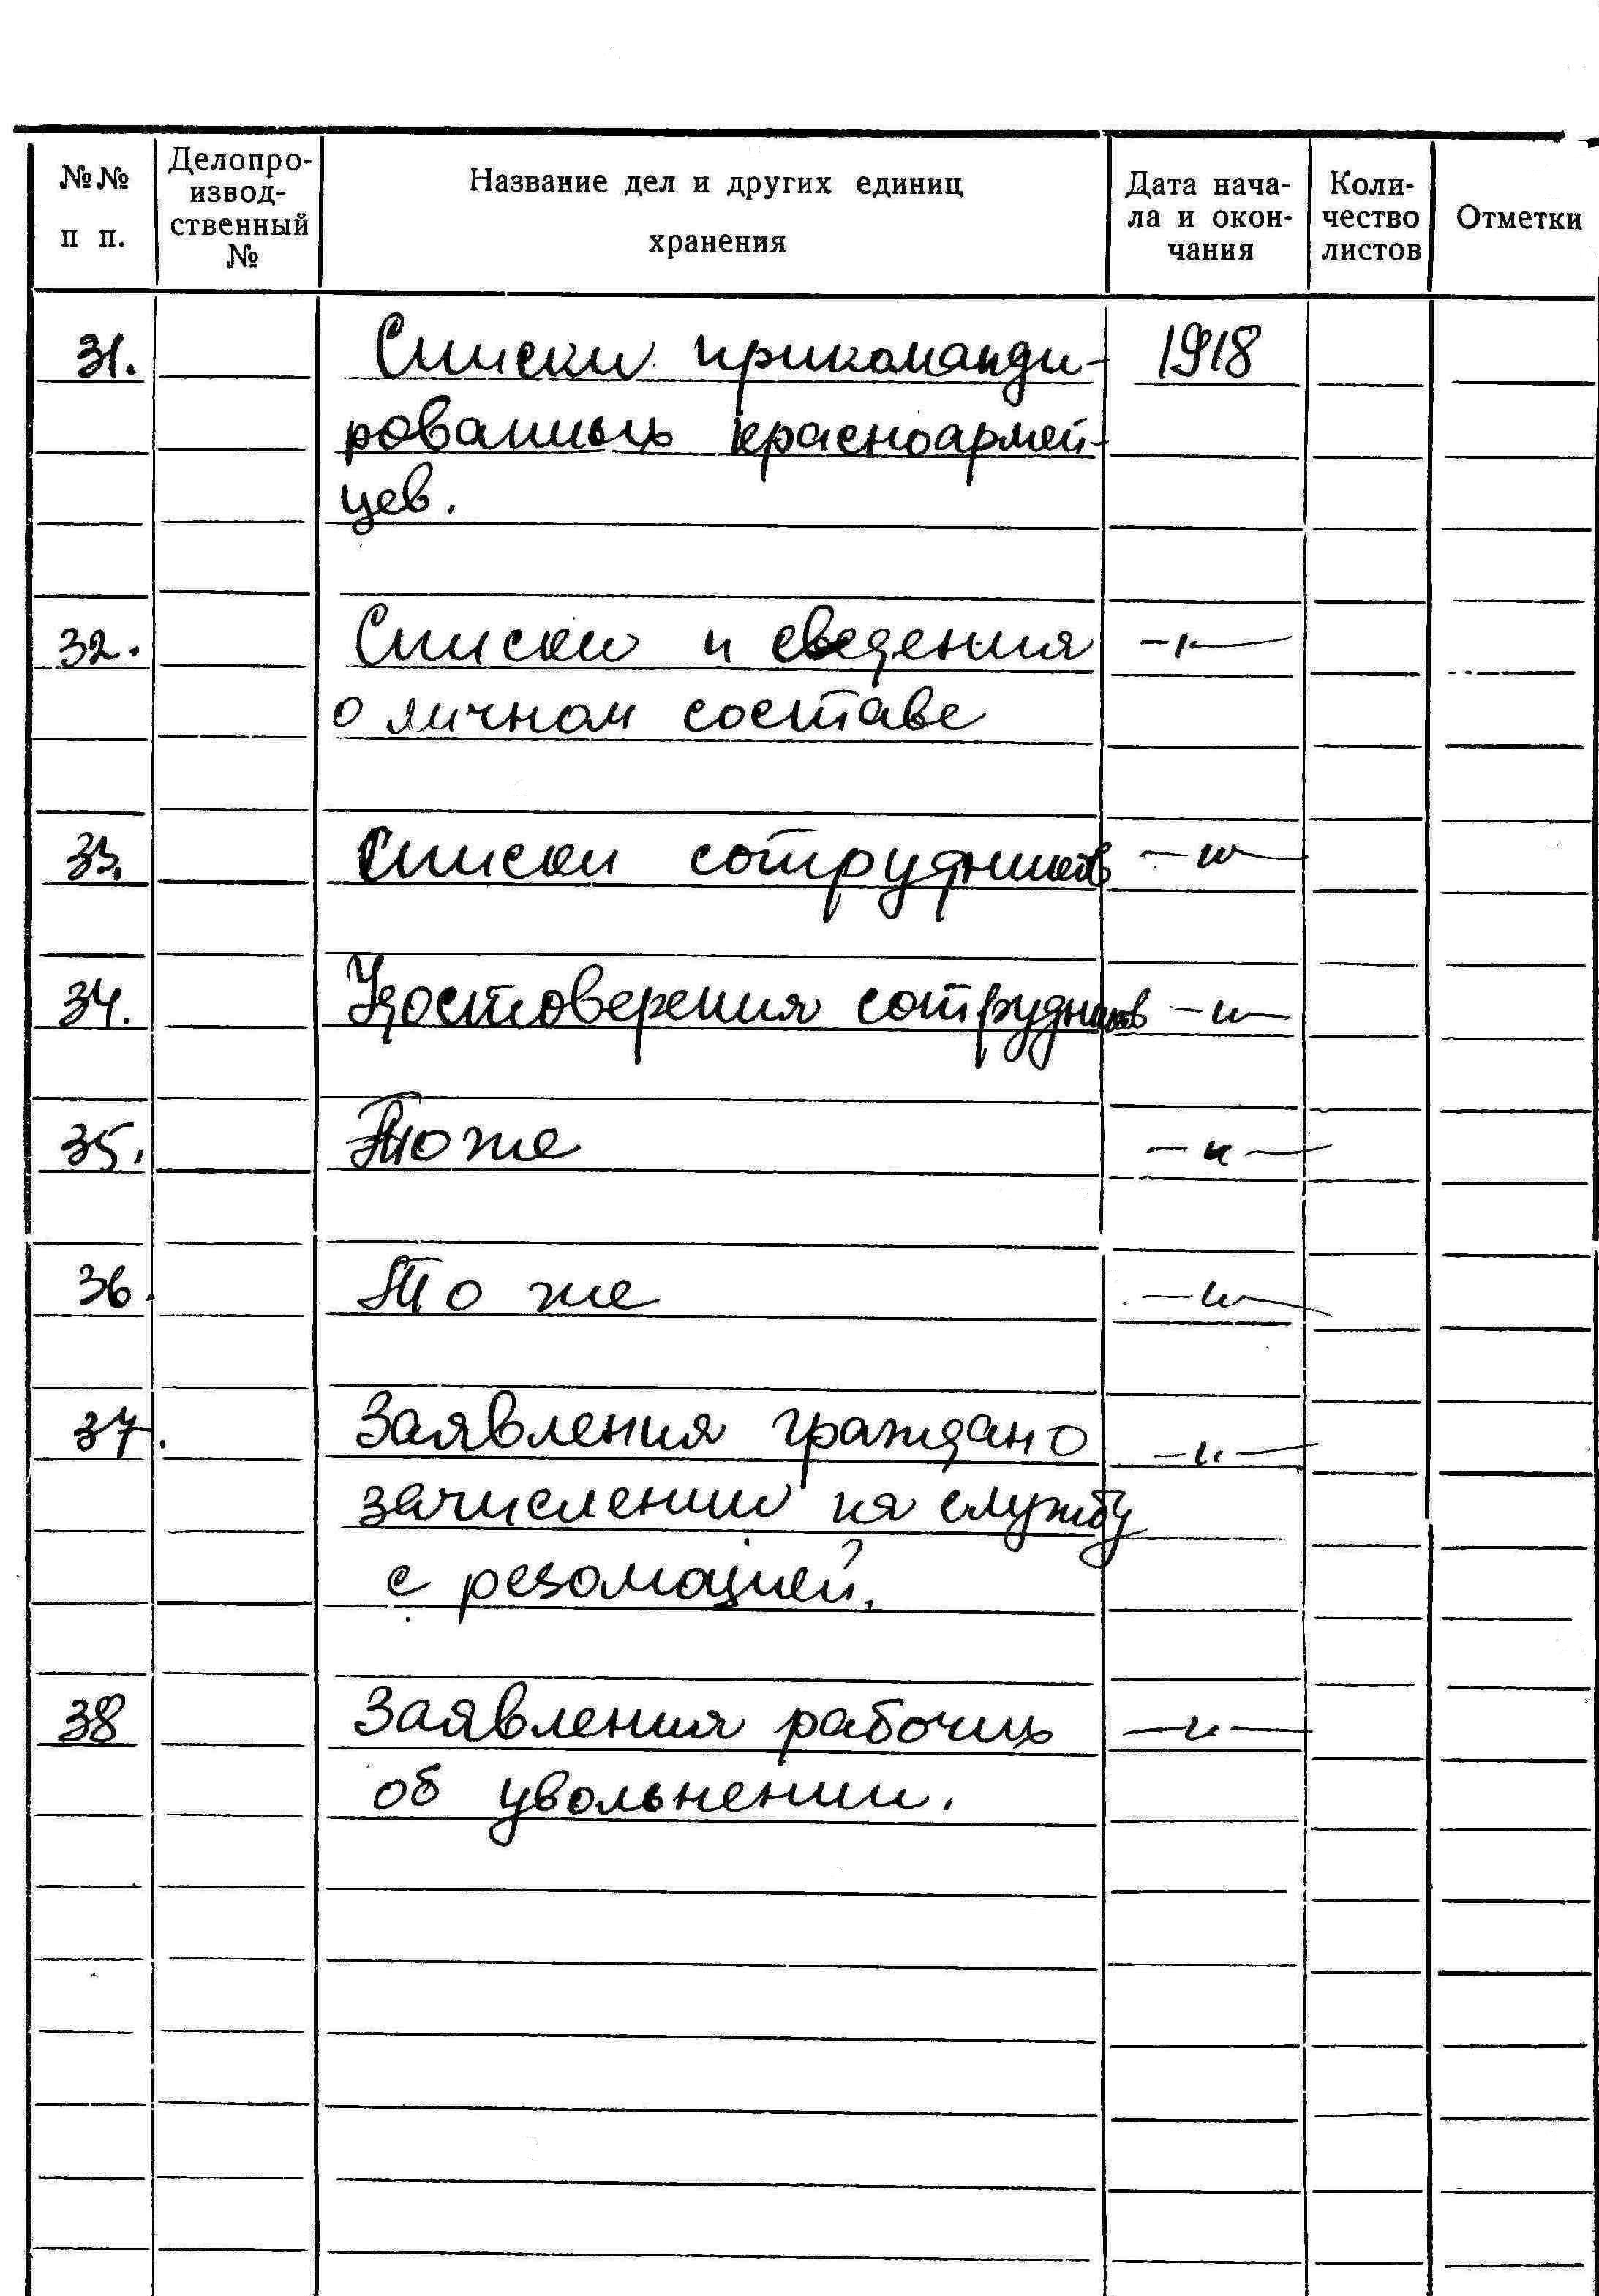 №№ п п.
Делопро-
извод-
ственный
№
Название дел и других единиц
хранения
Дата нача-
ла и окон-
чания
Коли-
чество
листов
Отметки
31. Списки прикоманди- 1918
рованных красноармей-
цев.
32. Списки и сведения -"-
о личном составе
33. Списки сотрудников -"-
34. Удостоверения сотрудников -"-
35. То же -"-
36. То же -"-
37. Заявления граждан о -"-
зачислении на службу
с резолюцией.
38 Заявления рабочих -"-
об увольнении.